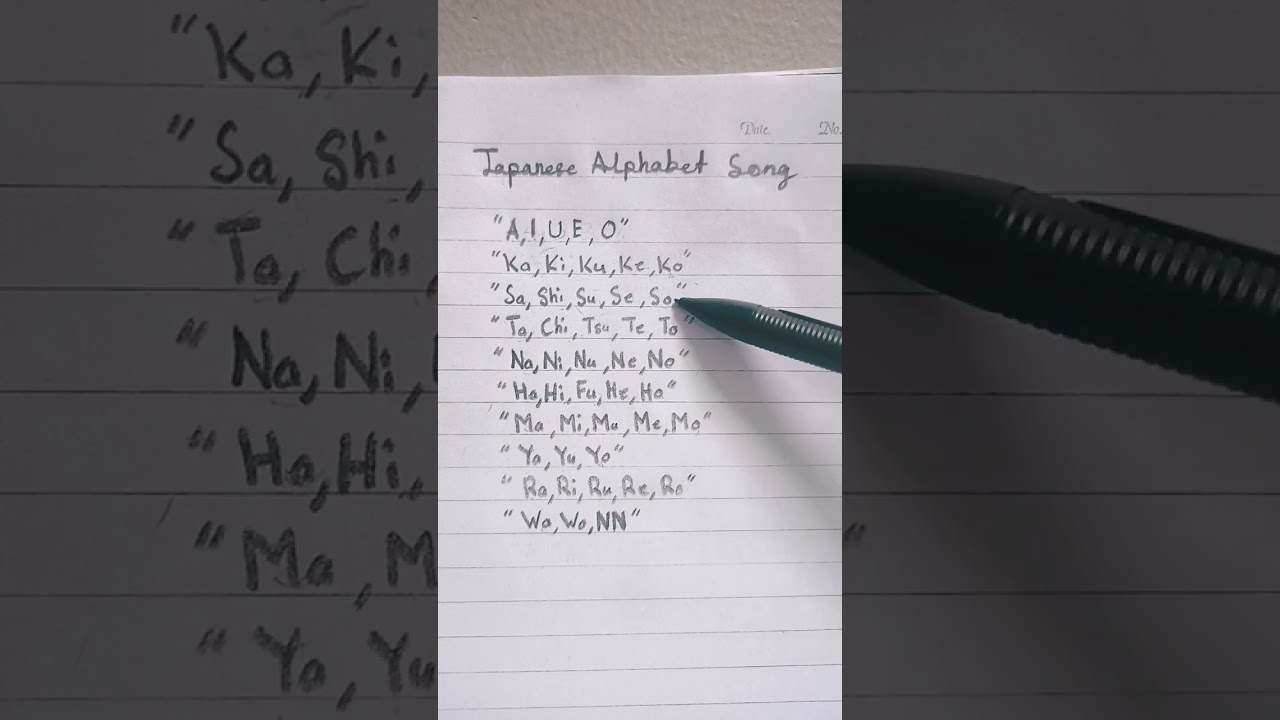 Date. No.
Japanese Alphabet Song
"A, I, U, E, O"
"Ka, Ki, Ku, Ke, Ko"
"Sa, Shi, Su, Se, So"
"Ta, Chi, Tsu, Te, To"
"Na, Ni, Nu, Ne, No"
"Ha, Hi, Fu, He, Ho"
"Ma, Mi, Mu, Me, Mo"
"Ya, Yu, Yo"
"Ra, Ri, Ru, Re, Ro"
"Wa, Wo, NN"